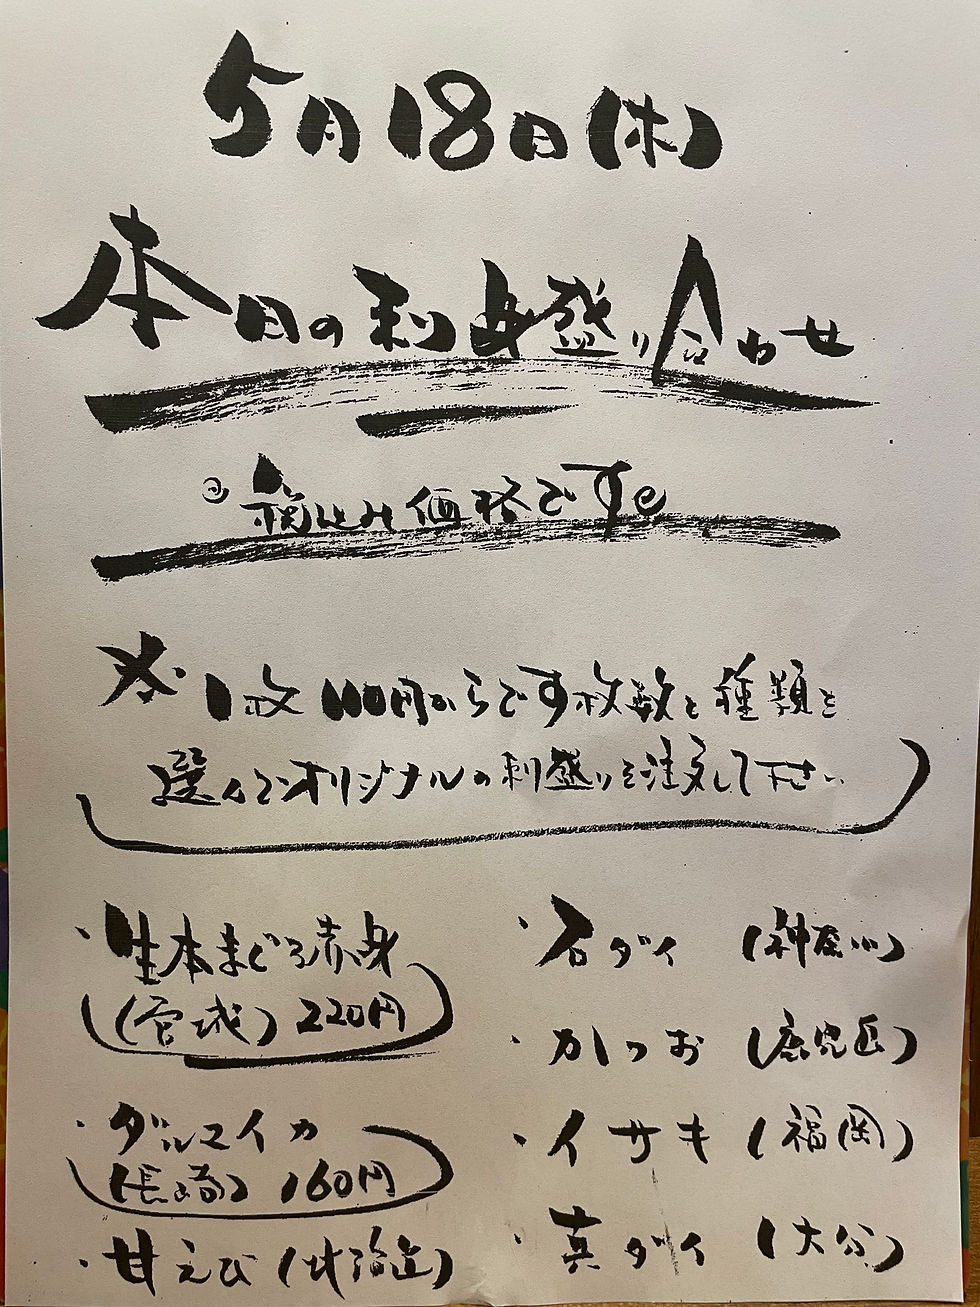 5月18日(木)
本日の刺身盛り合わせ
税込み価格です
※1枚110円からです枚数と種類を
選んでオリジナルの刺盛りを注文して下さい
・生本まぐろ赤身
(宮城) 220円
・ダルマイカ
(長崎) 160円
・甘えび (北海道)
・石ダイ (神奈川)
・かつお (鹿児島)
・イサキ (福岡)
・真ダイ (大分)